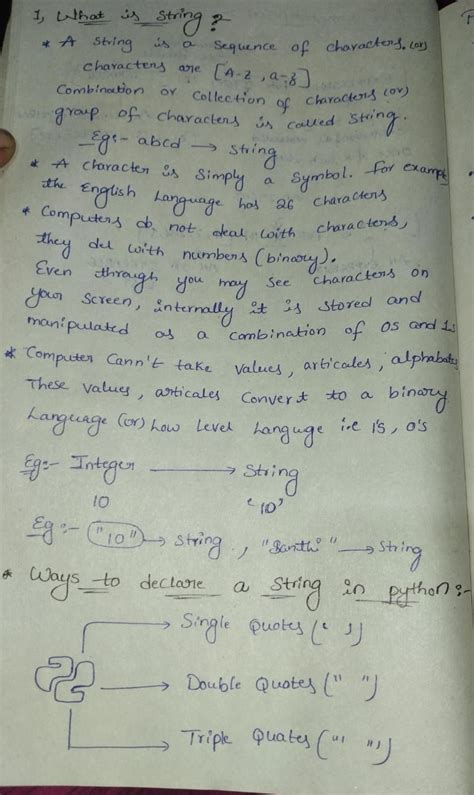 1, What is String?
* A String is a sequence of characters. (or)
characters are [A-Z, a-z]
Combination or Collection of characters (or)
group of characters is called String.
Eg:- abcd → String
* A character is Simply a Symbol. for example
the English Language has 26 characters
* Computers do not deal with characters,
they del with numbers (binary).
Even through you may see characters on
your screen, internally it is stored and
manipulated as a combination of 0s and 1s
* Computer Cann't take values, articales, alphabates
These values, articales Convert to a binary
Language (or) Low Level Languge i.e 1's, 0's
Eg:- Integer → String
10 '10'
Eg:- "10" → String, → String
* Ways to declare a String in python:-
Single Quotes (' ')
Double Quotes (" ")
Triple Quates ("' "')